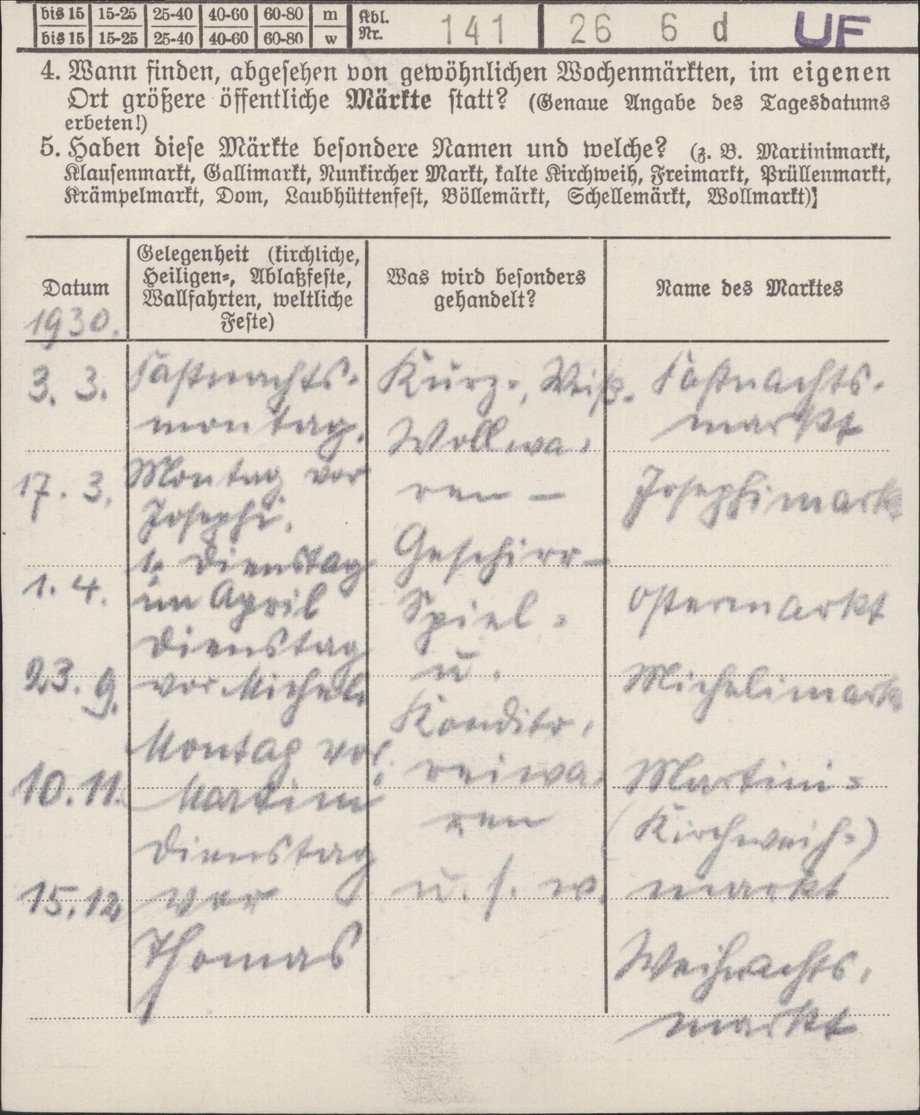 bis 15 15-25 25-40 40-60 60-80 m Kbl. Nr. 141 26 6 d UF
bis 15 15-25 25-40 40-60 60-80 w
4. Wann finden, abgesehen von gewöhnlichen Wochenmärkten, im eigenen
Ort größere öffentliche Märkte statt? (Genaue Angabe des Tagesdatums
erbeten!)
5. Haben diese Märkte besondere Namen und welche? (z. B. Martinimarkt,
Klausenmarkt, Gallimarkt, Nunkircher Markt, kalte Kirchweih, Freimarkt, Prüllenmarkt,
Krämpelmarkt, Dom, Laubhüttenfest, Böllemärkt, Schellemärkt, Wollmarkt)
Datum
1930.
Gelegenheit (kirchliche,
Heiligen-, Ablaßfeste,
Wallfahrten, weltliche
Feste)
Was wird besonders
gehandelt?
Name des Marktes
3. 3.
Fastnachts-
montag.
Kurz-, Weiß-
Wollwa-
Fastnachts-
markt
17. 3.
Montag vor
Josephi.
ren –
Josephimarkt
1. 4.
1. Dienstag
im April
Geschirr-
Spiel-
Ostermarkt
23. 9.
Dienstag
vor Micheli
u.
Kondito-
Michelimarkt
10. 11.
Montag vor
Martini
reiwa-
ren
Martini-
(Kirchweih-)
markt
15. 12
Dienstag
vor
Thomas
u. s. w.
Weihnachts-
markt